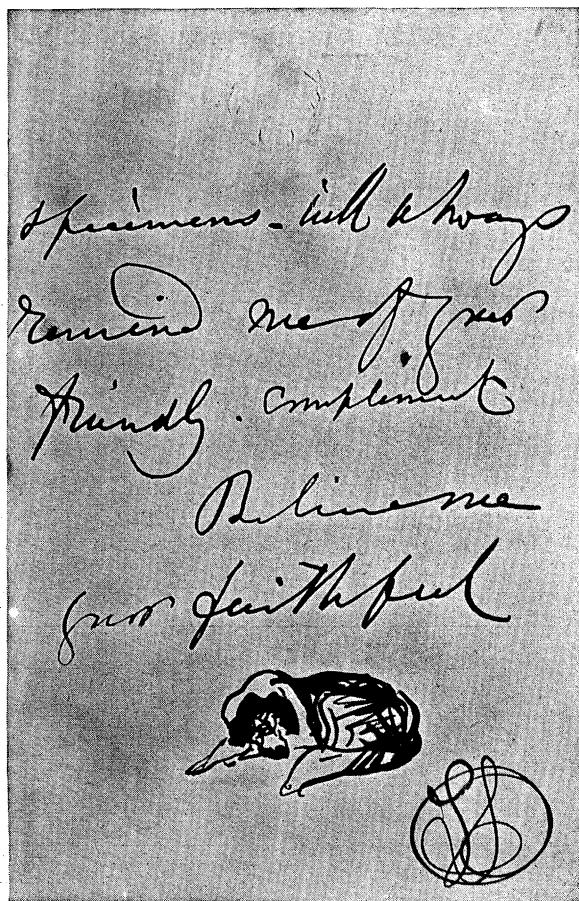 specimens - will always
remind me of your
friendly. compliment
Believe me
your faithful